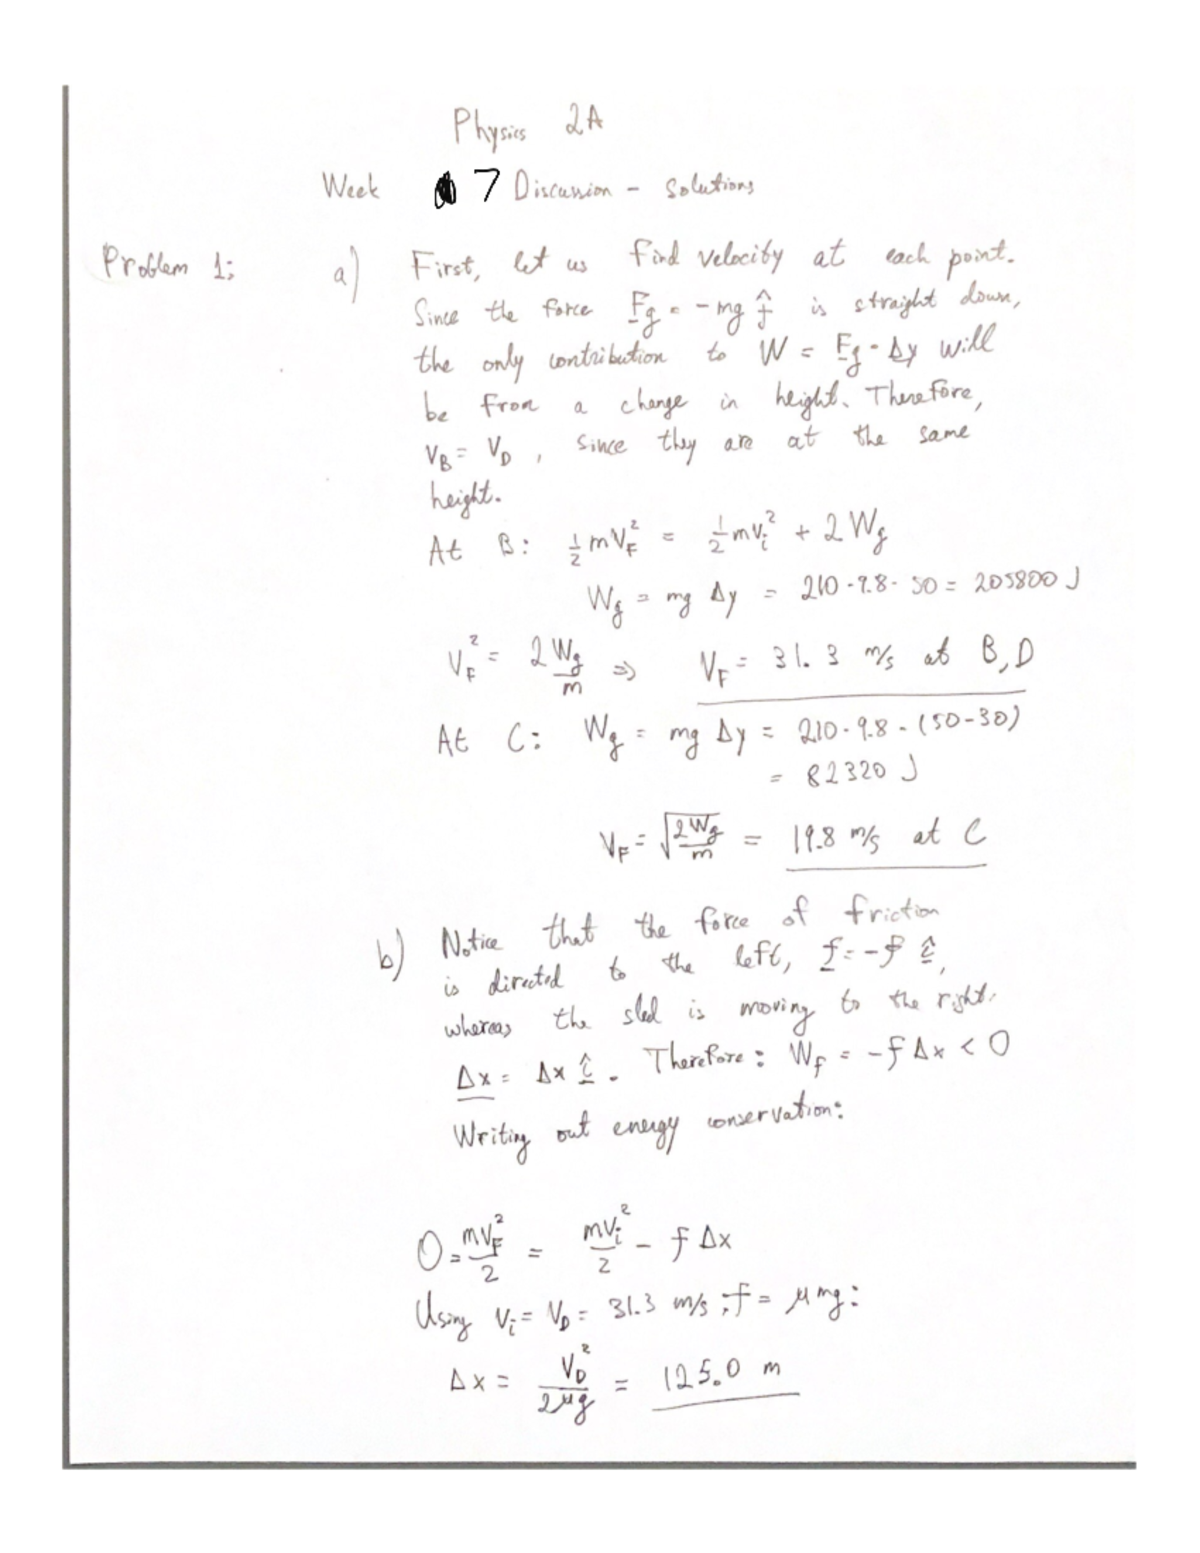 Physics 2A
Week 7 Discussion - Solutions
Problem 1: a) First, let us find velocity at each point.
Since the force F̲g = -mg ĵ is straight down,
the only contribution to W = F̲g · Δy̲ will
be from a change in height. Therefore,
V_B = V_D, since they are at the same
height.
At B: 1/2 mV_F² = 1/2 mv_i² + 2 Wg
Wg = mg Δy = 210 · 9.8 · 50 = 205800 J
V_F² = 2Wg/m ⇒ V_F = 31.3 m/s at B, D
At C: Wg = mg Δy = 210 · 9.8 · (50-30)
= 82320 J
V_F = √(2Wg/m) = 19.8 m/s at C
b) Notice that the force of friction
is directed to the left, f̲ = -f î,
whereas the sled is moving to the right.
Δx̲ = Δx î. Therefore: W_f = -f Δx < 0
Writing out energy conservation:
0 = mV_F²/2 = mv_i²/2 - f Δx
Using v_i = V_D = 31.3 m/s; f = μmg:
Δx = V_D²/2μg = 125.0 m